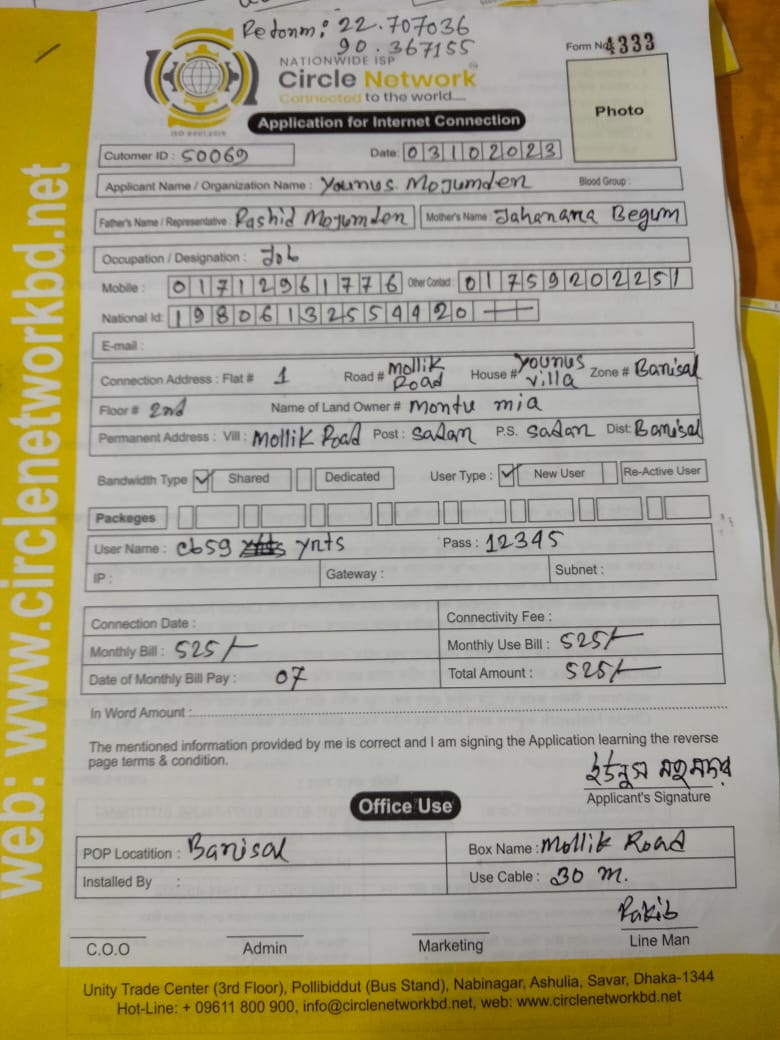 Redonm: 22.707036
90.367155
NATIONWIDE ISP
Circle Network
Connected to the world....
ISO 9001:2015
Form No 4333
Photo
Application for Internet Connection
Cutomer ID : 50069 Date: 03102023
Applicant Name / Organization Name : Younus Mojumden Blood Group :
Father's Name / Representative : Rashid Mojumden Mother's Name : Jahanana Begum
Occupation / Designation : Job
Mobile : 01712961776 Other Contact : 01759202251
National Id: 1980613255442 0
E-mail :
Connection Address : Flat # 1 Road # Mollik Road House # Younus villa Zone # Banisal
Floor # 2nd Name of Land Owner # Montu mia
Permanent Address : Vill : Mollik Road Post : Sadan P.S. Sadan Dist: Banisal
Bandwidth Type Shared Dedicated User Type : New User Re-Active User
Packeges
User Name : cb59 ynts Pass : 12345
IP : Gateway : Subnet :
Connection Date : Connectivity Fee :
Monthly Bill : 525/- Monthly Use Bill : 525/-
Date of Monthly Bill Pay : 07 Total Amount : 525/-
In Word Amount :
The mentioned information provided by me is correct and I am signing the Application learning the reverse
page terms & condition.
ইউনুস মহুমদার
Applicant's Signature
Office Use
POP Locatition : Banisal Box Name : Mollik Road
Installed By : Use Cable : 30 m.
Rakib
C.O.O Admin Marketing Line Man
Unity Trade Center (3rd Floor), Pollibiddut (Bus Stand), Nabinagar, Ashulia, Savar, Dhaka-1344
Hot-Line: + 09611 800 900, info@circlenetworkbd.net, web: www.circlenetworkbd.net
web: www.circlenetworkbd.net